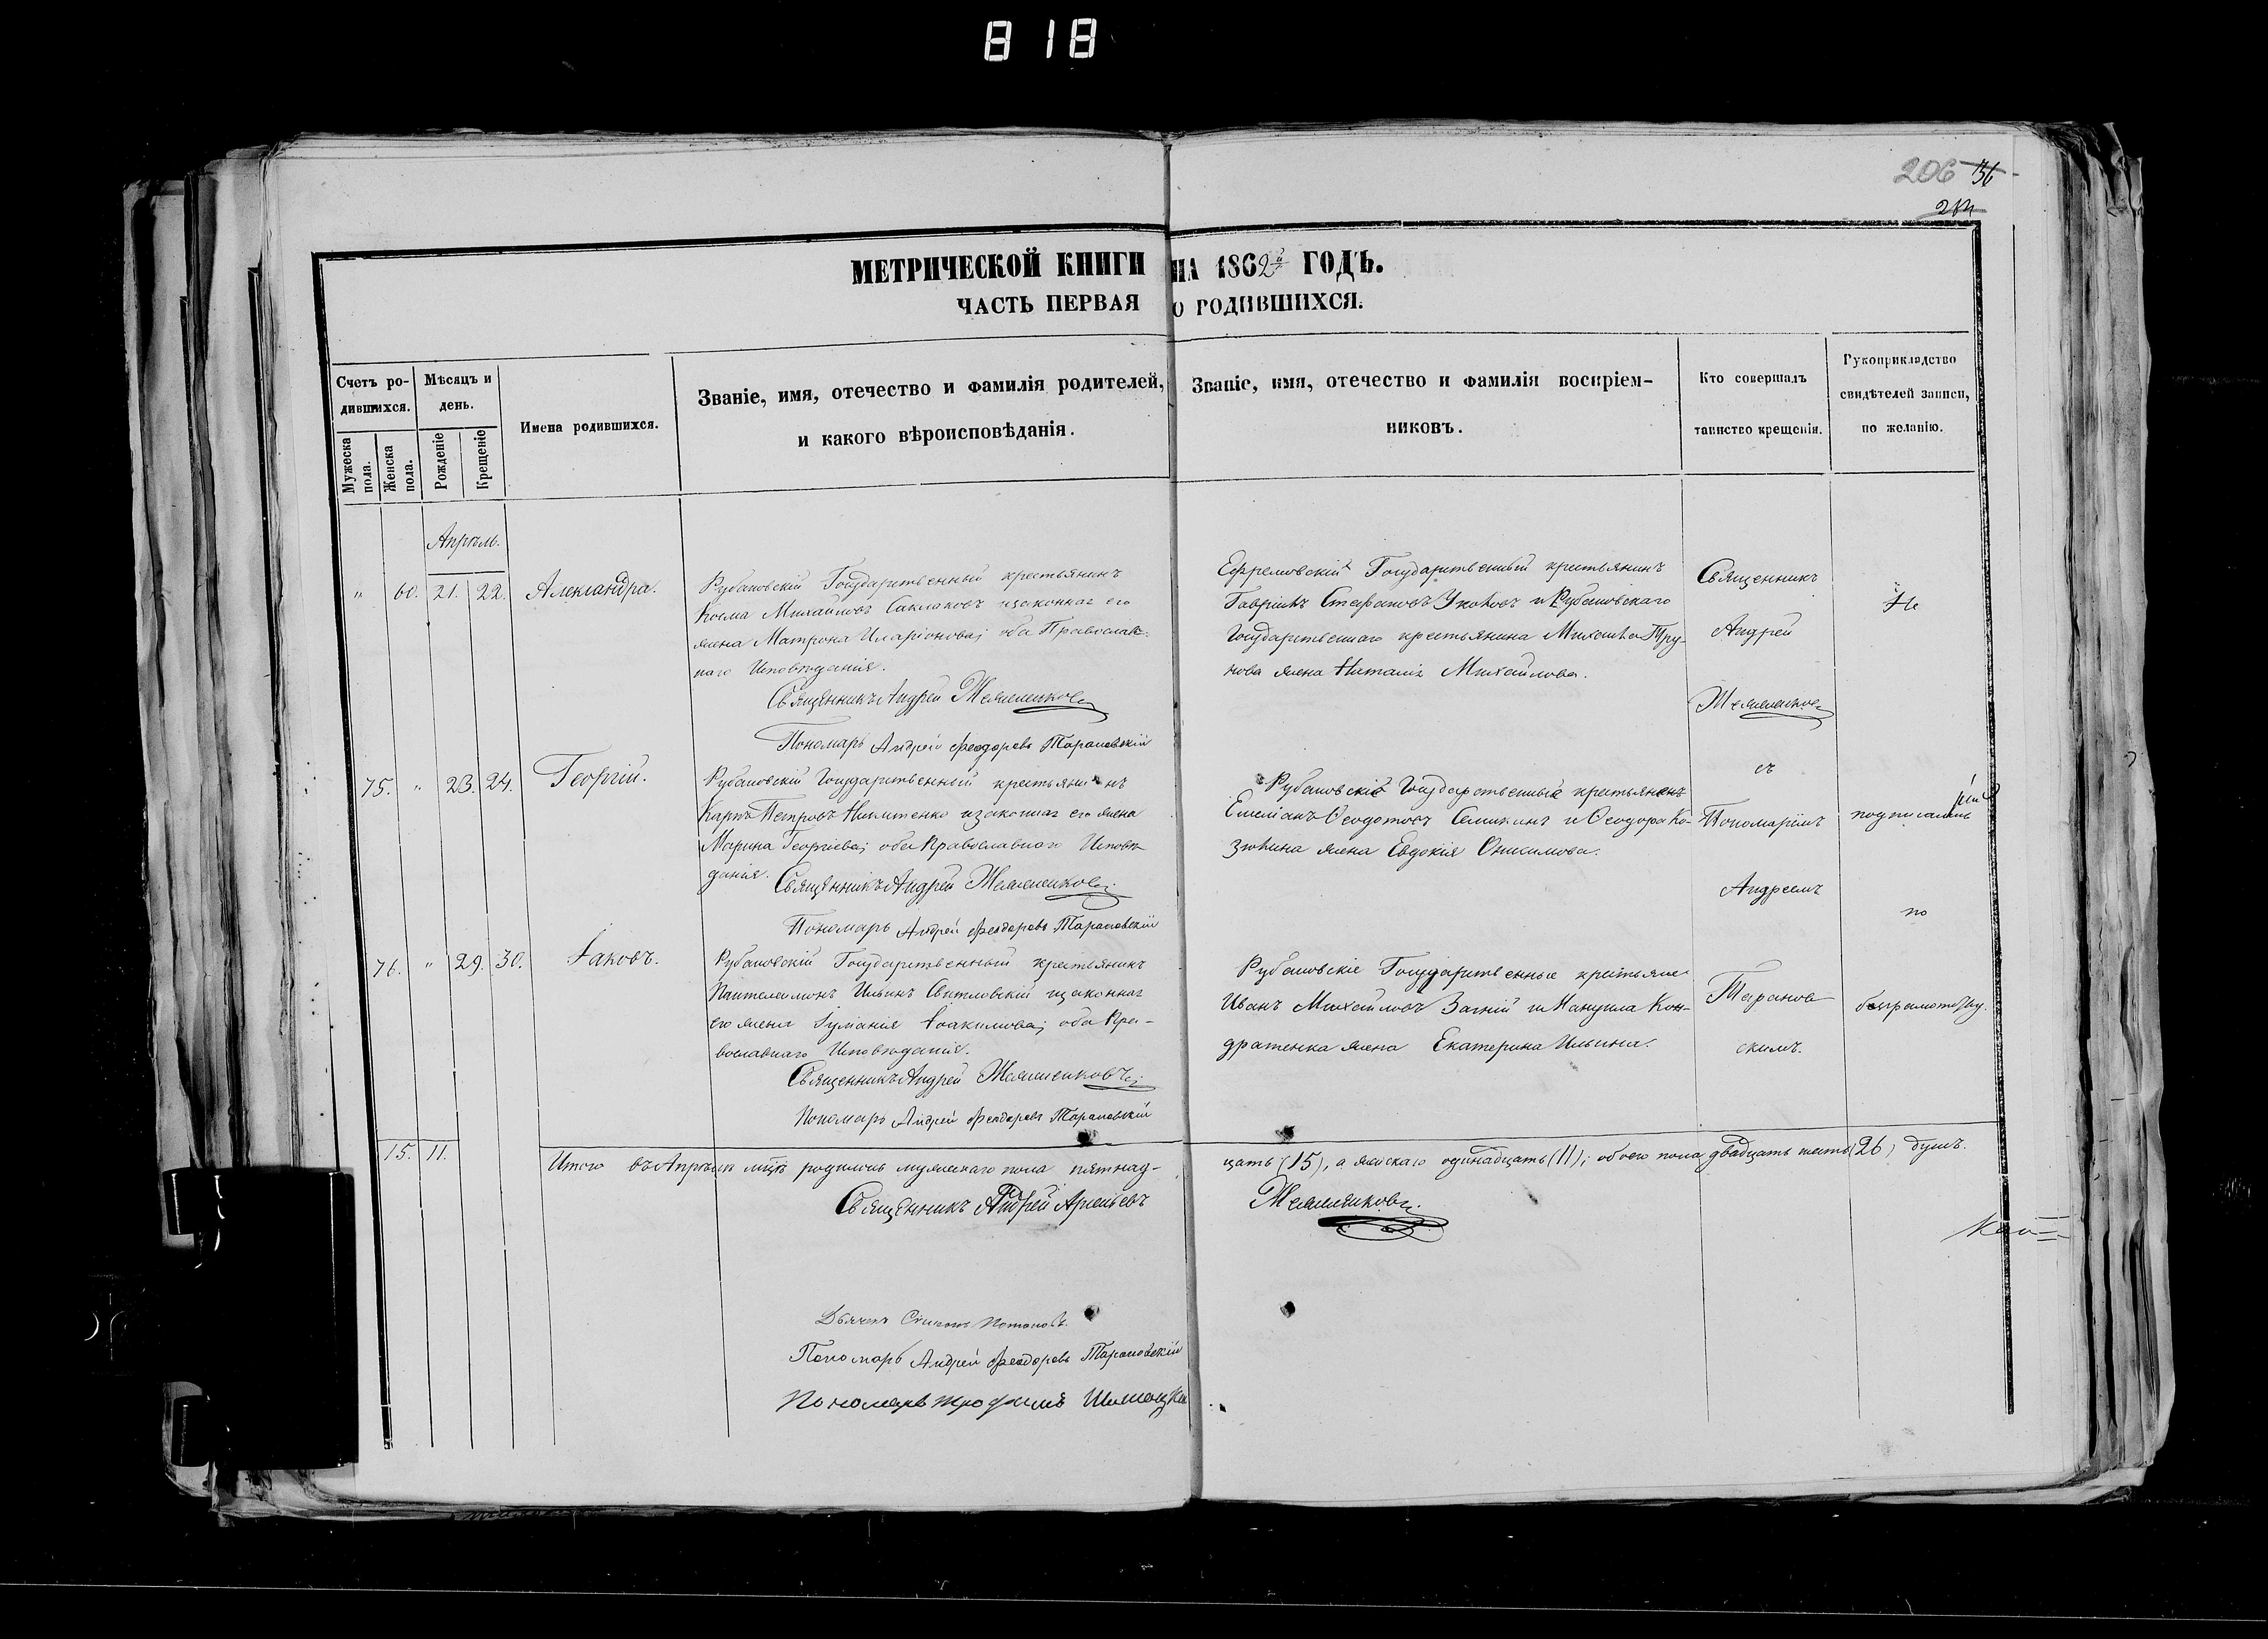 818
206 36
284
МЕТРИЧЕСКОЙ КНИГИ НА 1862й ГОДЪ.
ЧАСТЬ ПЕРВАЯ О РОДИВШИХСЯ.
Счетъ ро-
дившихся.
Мужеска
пола.
Женска
пола.
Мѣсяцъ и
день.
Рожденіе
Крещеніе
Имена родившихся.
Званіе, имя, отечество и фамилія родителей,
и какого вѣроисповѣданія.
Званіе, имя, отечество и фамилія воспріем-
никовъ.
Кто совершалъ
таинство крещенія.
Рукоприкладство
свидѣтелей записи,
по желанію.
Апрѣль.
" 60. 21. 22. Александра.
Рубановскій Государственный крестьянинъ
Косма Михайловъ Саклаковъ и законная его
жена Матрона Иларіонова; оба Православ-
наго Исповѣданія.
Священникъ Андрей
Пономарь Андрей Феодоровъ Тарановскій
Ефремовскій Государственный крестьянинъ
Гавріилъ Стефановъ и Рубановскаго
Государственнаго крестьянина Михаила Тру-
нова жена Наталія Михайлова.
75. " 23. 24. Георгій.
Рубановскій Государственный крестьянинъ
Карпъ Петровъ Никитенко и законная его жена
Марина Георгіева; оба Православнаго Исповѣ-
данія.
Священникъ Андрей
Пономарь Андрей Феодоровъ Тарановскій
Рубановскіе Государственные крестьяне
Емеліанъ Ѳеодотовъ Семикинъ и Ѳеодора Ко-
зюкина жена Евдокія Онисимова.
76. " 29. 30. Іаковъ.
Рубановскій Государственный крестьянинъ
Пантелеимонъ Ильинъ Свитловскій и законная
его жена Іуліанія Іоакимова; оба Пра-
вославнаго Исповѣданія.
Священникъ Андрей
Пономарь Андрей Феодоровъ Тарановскій
Рубановскіе Государственные крестьяне
Иванъ Михайловъ Загній и Мануила Кон-
дратенка жена Екатерина Ильина.
Священникъ
Андрей
съ
Пономаремъ
Андреемъ
Таранов-
скимъ.
Не
подписались
по
безграмотству.
15. 11.
Итого въ Апрѣлѣ мцѣ родилось мужескаго пола пятнад-
цать (15), а женскаго одинадцать (11); обоего пола двадцать шесть (26) душъ.
Священникъ Андрей Арсеньевъ
Дьячекъ Симеонъ Потаповъ
Пономарь Андрей Феодоровъ Тарановскій
Пономарь Трофимъ
Май